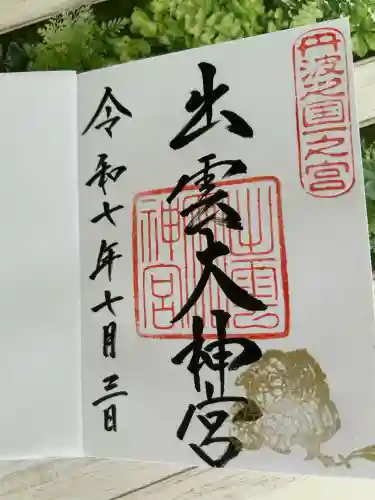 丹波之国一之宮
出雲大神宮
令和七年十月三日